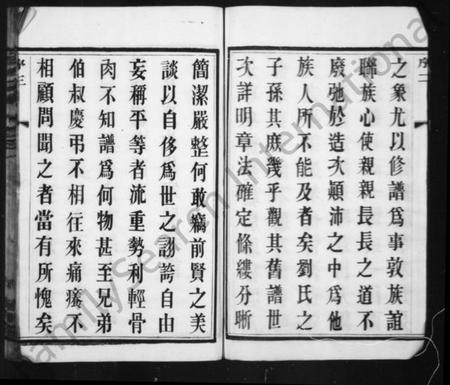 序二
之象尤以修譜為事敦族誼
聯族心使親親長長之道不
廢弛於造次顛沛之中為他
族人所不能及者矣劉氏之
子孫其庶幾乎觀其舊譜世
次詳明章法確定條縷分晰
簡潔嚴整何敢竊前賢之美
談以自侈為世之謭誇自由
妄稱平等者流重勢利輕骨
肉不知譜為何物甚至兄弟
伯叔慶弔不相往來痛癢不
相顧問聞之者當有所愧矣
序三
FamilySearch International